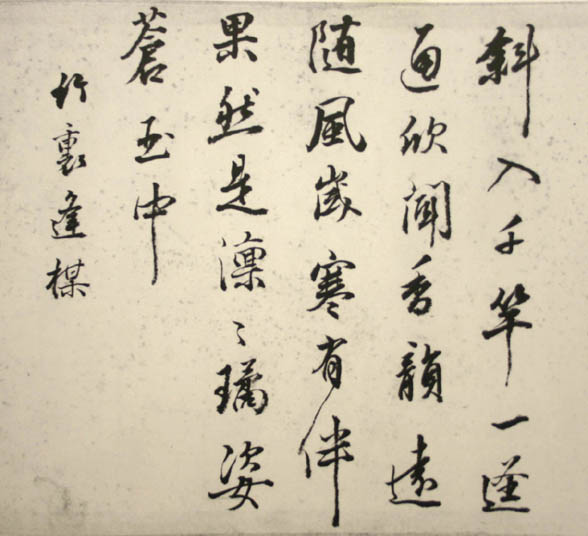 斜入千竿一逕
通欣聞香韻遠
随風歲寒有伴
果然是凜〻璚姿
蒼玉中
竹裏逢楳